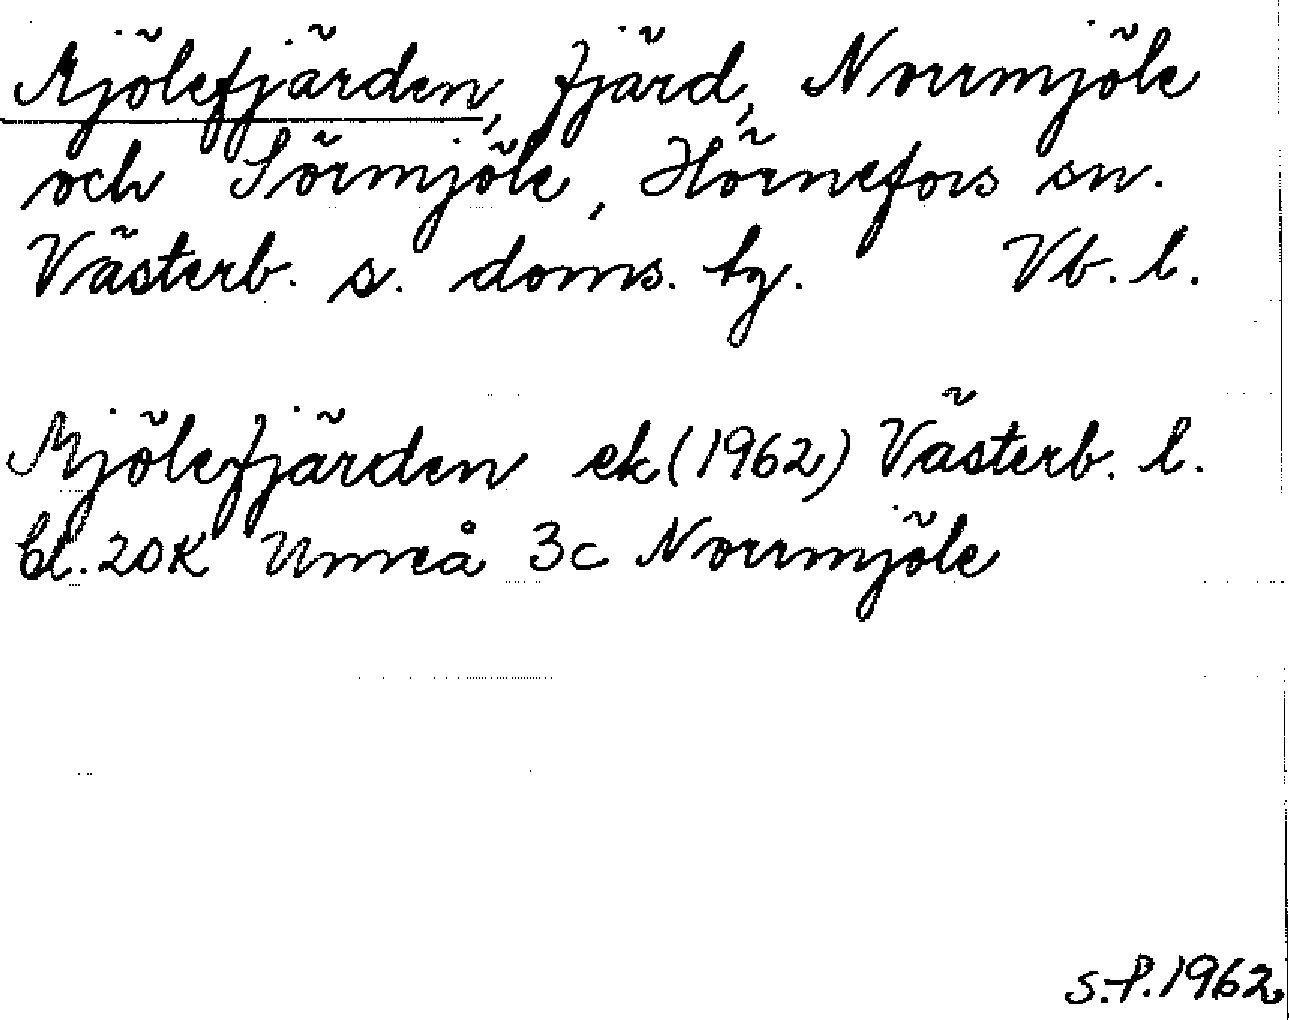 Mjölefjärden, fjärd, Norrmjöle
och Sörmjöle, Hörnefors sn.
Västerb. s. doms. tg. Vb. l.
Mjölefjärden ek (1962) Västerb. l.
bl. 20K Umeå 3c Norrmjöle
S.P. 1962